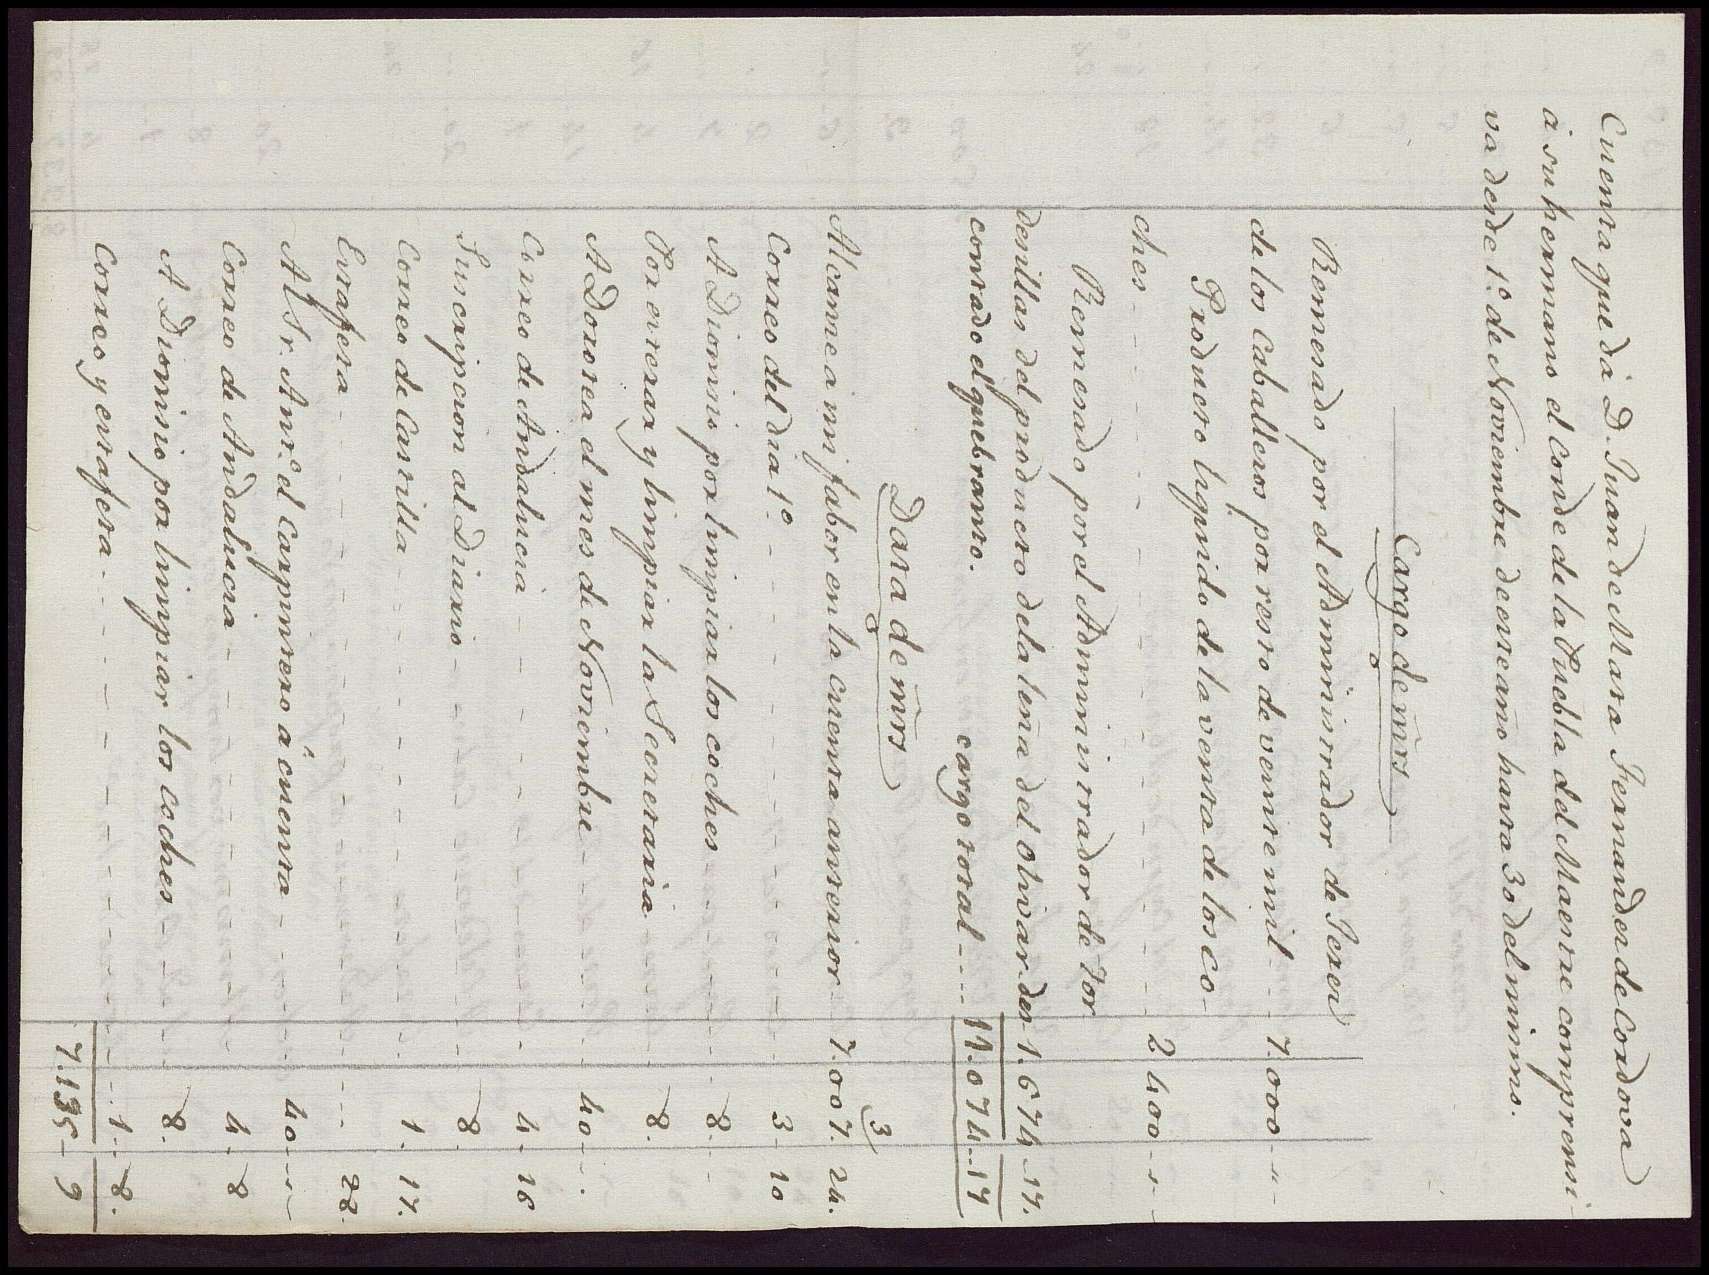 Cuenta que dá D. Juan de Mata Fernandez de Cordova
á su hermano el Conde de la Puebla del Maestre comprensi-
va desde 1º. de Noviembre de este año hasta 30 del mismo.
Cargo de mrs
Remesado por el Administrador de Jerez
de los Caballeros por resto de veinte mil - - 7.000 - " -
Producto liquido de la venta de los co-
ches - - - - - - - - - - - - 2 400 - " -
Remesado por el Administrador de Tor
desillas del producto de la leña del olivar des- 1.674 - 17.
contado el quebranto. cargo total - - - - 11.074 - 17
Data de mrs
Alcance a mi fabor en la cuenta anterior - 7.007. 24.
Correo del dia 1º - - - - - - - - 3 - 10
A Dionisio por limpiar los coches - - - - 8. -
Por esterar y limpiar la Secretaria - - - 8.
A Dorotea el mes de Noviembre - - - - 40 - - .
Correo de Andalucia - - - - - - - 4. - 16
Suscripcion al Diario - - - - - - - 8.
Correo de Castilla - - - - - - - - 1. 17.
Estafeta - - - - - - - - - - - - 22.
Al Sr. Antº. el Carpintero á cuenta - - - 40 - " -
Correo de Andalucia - - - - - - - 4. - 8
A Dionisio por limpiar los coches - - - - 8.
Correo y estafeta - - - - - - - - 1. - 8.
7.135 - 9